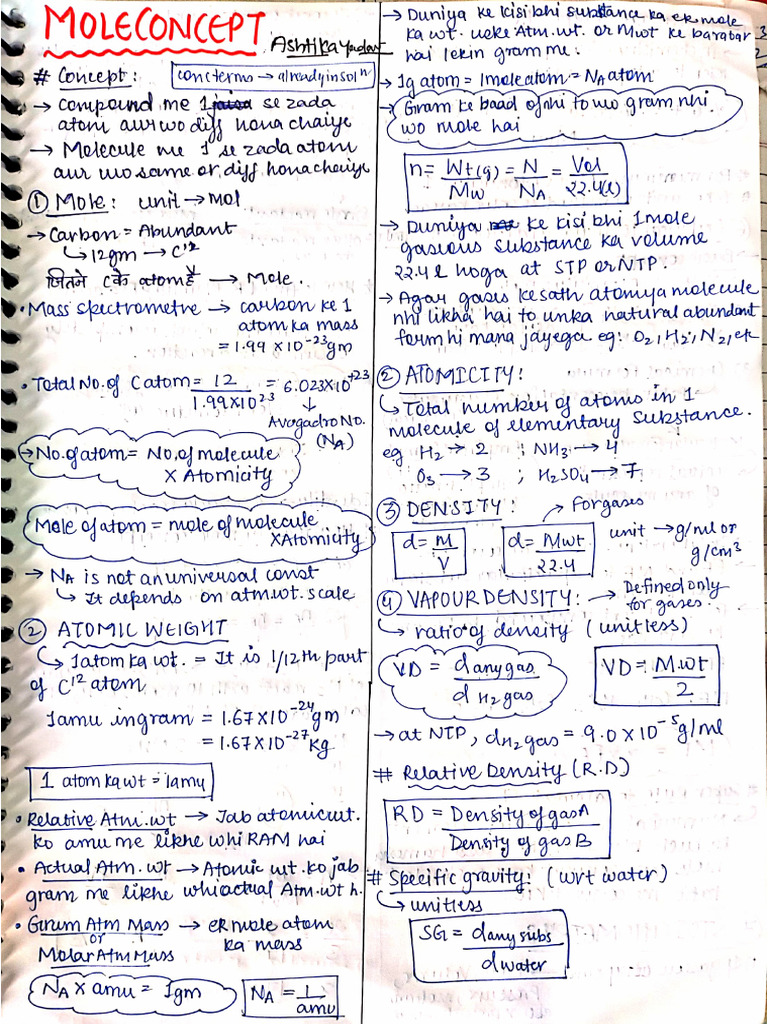 MOLECONCEPT
Ashtika Yadav
# Concept: conc terms → already in solⁿ
→ compound me 1 se zada
atom aur wo diff hona chaiye
→ Molecule me 1 se zada atom
aur wo same or diff hona chaiye
① Mole: unit → mol
→ Carbon = Abundant
↳ 12gm → C¹²
जितने C के atom है → Mole.
• Mass spectrometre → carbon ke 1
atom ka mass
= 1.99 × 10⁻²³ gm
• Total No. of C atom = 12/1.99×10²³ = 6.023×10⁺²³
↓
Avogadro No.
(NA)
→ No. of atom = No. of molecule
× Atomicity
Mole of atom = mole of molecule
× Atomicity
→ NA is not an universal const
↳ It depends on atm.wt. scale
② ATOMIC WEIGHT
↳ 1 atom ka wt. = It is 1/12th part
of C¹² atom
1 amu in gram = 1.67 × 10⁻²⁴ gm
= 1.67 × 10⁻²⁷ Kg
1 atom ka wt = 1amu
• Relative Atm. wt → Jab atomic wt.
ko amu me likhe whi RAM hai
• Actual Atm. wt → Atomic wt. ko jab
gram me likhe whi actual Atm. wt h.
• Gram Atm Mass → ek mole atom
or ka mass
Molar Atm Mass
NA × amu = 1gm NA = 1/amu
→ Duniya ke kisi bhi substance ka ek mole
ka wt. uske Atm. wt. or Mwt ke barabar
hai lekin gram me:
→ 1g atom = 1 mole atom = NA atom
→ Gram ke baad of nhi to wo gram nhi
wo mole hai
n = Wt(g)/Mw = N/NA = Vol/22.4(l)
→ Duniya ke kisi bhi 1 mole
gasious substance ka volume
22.4 l hoga at STP or NTP.
→ Agar gases ke sath atom ya molecule
nhi likha hai to unka natural abundant
form hi mana jayega eg: O₂, H₂, N₂, etc
② ATOMICITY:
↳ Total number of atoms in 1
molecule of elementary substance.
eg H₂ → 2 ; NH₃ → 4
O₃ → 3 ; H₂SO₄ → 7
③ DENSITY: → For gases
d = M/V d = Mwt/22.4 unit → g/ml or
g/cm³
④ VAPOUR DENSITY: → Defined only
for gases.
↳ ratio of density (unitless)
VD = d any gas/d H₂ gas VD = M.wt/2
→ at NTP, d H₂ gas = 9.0 × 10⁻⁵ g/ml
# Relative Density (R.D)
RD = Density of gas A/Density of gas B
# Specific gravity: (wrt water)
↳ unitless
SG = d any subs/d water